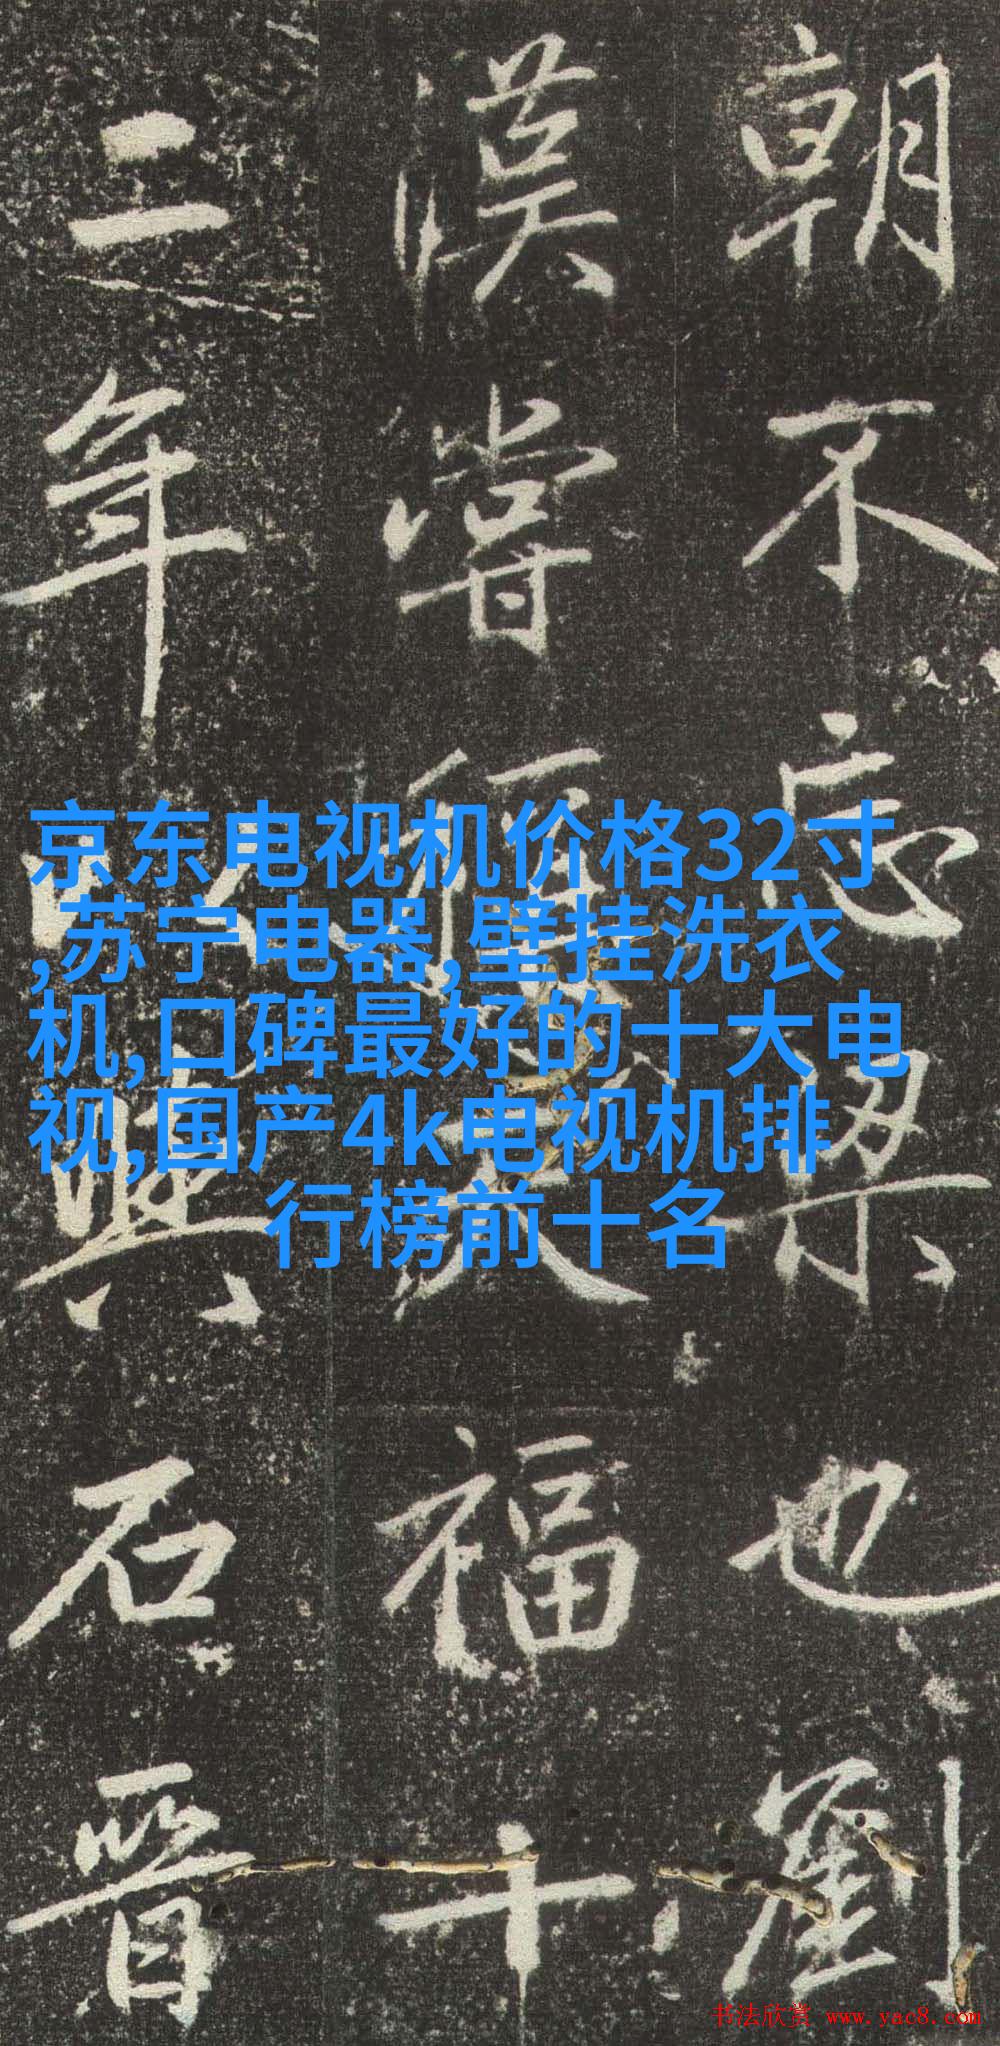 朝不忘梁也劉
漢嘗天福十
二年以與石晉
京东电视机价格32寸
,苏宁电器,壁挂洗衣
机,口碑最好的十大电
视,国产4k电视机排
行榜前十名
书法欣赏 www.yac8.com